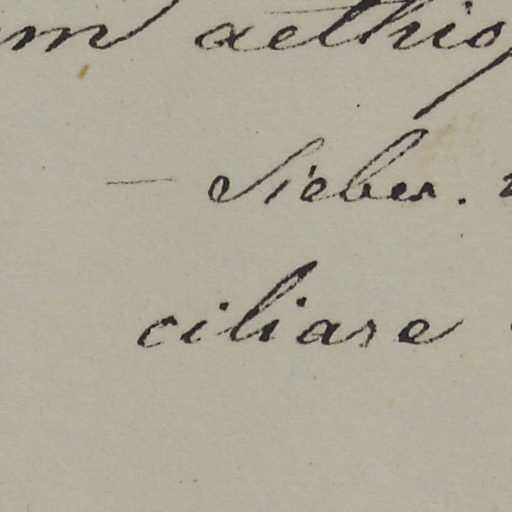 m aethio
— Sieber.
ciliare